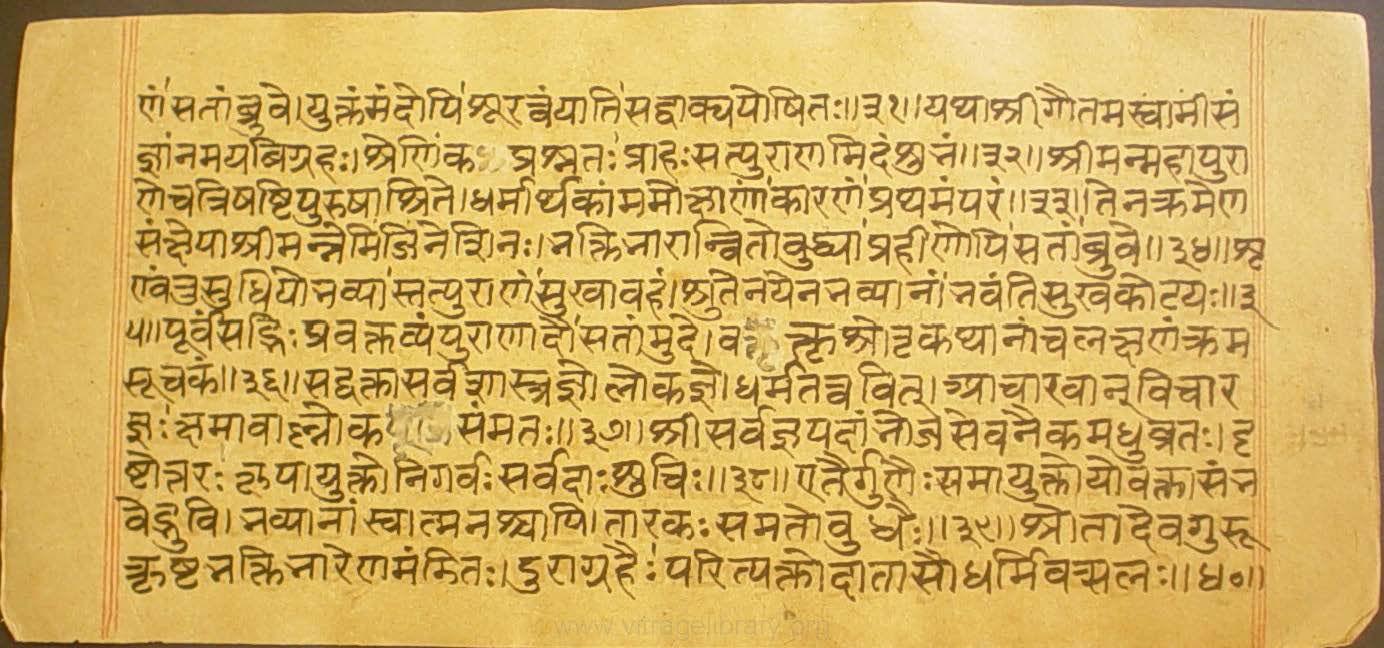 णं सतां ब्रुवे। युक्तं मंदोपि शूरत्वं याति सद्वाक्यपोषितः॥३१॥ यथा श्रीगौतमस्वामी सं
ज्ञांनमयविग्रहः। श्रेणिक प्रश्नतः प्राहः सत्पुराणमिदं शुभं॥३२॥ श्रीमन्महापुरा
णे च त्रिषष्टिपुरुषाश्रिते। धर्मार्थकांममोक्षाणां कारणं प्रथमं परं॥३३॥ तेन क्रमेण
संक्षेपा श्रीमन्नेमिजिनेशिनः। भक्तिभारान्वितो वुद्ध्या प्रहीणोपि सतां ब्रुवे॥३४॥ शृ
ण्वंतु सुधियो भव्या स्तत्पुराणं सुखावहं। श्रुतेन येन भव्यानां भवंति सुखकोटयः॥३
५॥ पूर्वं सद्भिः प्रवक्तव्यं पुराणादौ सतां मुदे। व क्तृश्रोतृकथानां च लक्षणं क्रम
सूचकं॥३६॥ सद्वक्ता सर्वशास्त्रज्ञो लोकज्ञो धर्मतत्ववित्। आचारवान् विचार
ज्ञः क्षमावान् लोक संमतः॥३७॥ श्रीसर्वज्ञपदांभोजसेवनैकमधुव्रतः। दृ
ष्टोत्तरः कृपायुक्तो निगर्वः सर्वदाः शुचिः॥३८॥ एतैर्गुणैः समायुक्तो यो वक्ता संभ
वेद्भुवि। भव्यानां स्वात्मनश्चापि। तारकः स मतो वुधैः॥३९॥ श्रोता देवगुरू
त्कृष्टभक्तिभारेण मंडितः। दुराग्रहैः परित्यक्तो दातासौ धर्मिवत्सलः॥४०॥
www.vitragelibrary.org